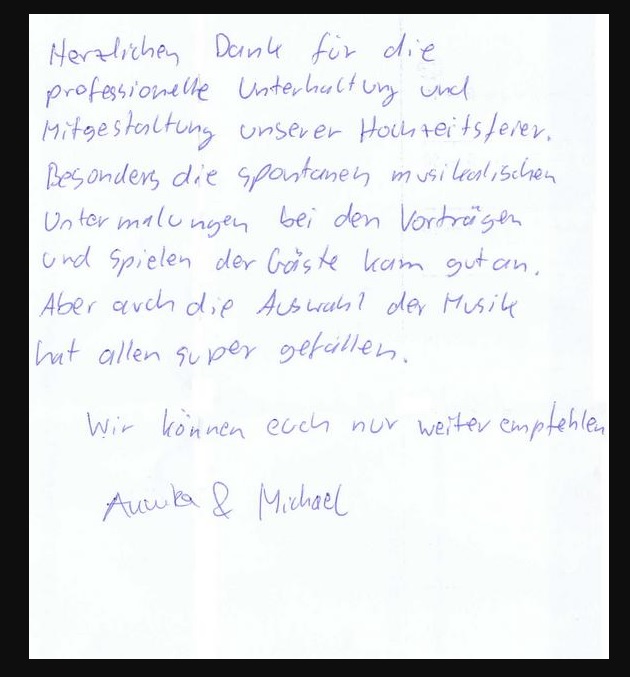 Herzlichen Dank für die
professionelle Unterhaltung und
Mitgestaltung unserer Hochzeitsfeier.
Besonders die spontanen musikalischen
Untermalungen bei den Vorträgen
und Spielen der Gäste kam gut an.
Aber auch die Auswahl der Musik
hat allen super gefallen.
Wir können euch nur weiter empfehlen
Annika & Michael